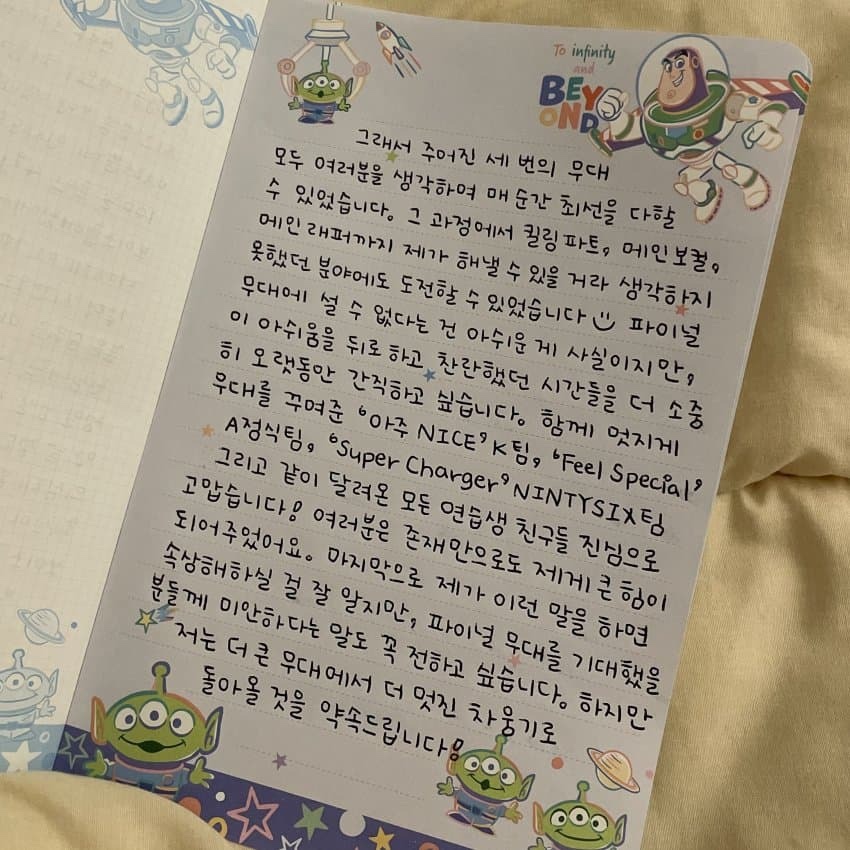 To infinity
and
BEYOND
그래서 주어진 세 번의 무대
모두 여러분을 생각하며 매 순간 최선을 다할
수 있었습니다. 그 과정에서 킬링파트, 메인보컬,
메인래퍼까지 제가 해낼 수 있을 거라 생각하지
못했던 분야에도 도전할 수 있었습니다 파이널
무대에 설 수 없다는 건 아쉬운 게 사실이지만,
이 아쉬움을 뒤로 하고 찬란했던 시간들을 더 소중
히 오랫동안 간직하고 싶습니다. 함께 멋지게
무대를 꾸며준 '아주 NICE' K팀, 'Feel Special'
A정식팀, 'Super Charger' NINTYSIX팀
그리고 같이 달려온 모든 연습생 친구들 진심으로
고맙습니다! 여러분은 존재만으로도 제게 큰 힘이
되어주었어요. 마지막으로 제가 이런 말을 하면
속상해하실 걸 잘 알지만, 파이널 무대를 기대했을
분들께 미안하다는 말도 꼭 전하고 싶습니다. 하지만
저는 더 큰 무대에서 더 멋진 차웅기로
돌아올 것을 약속드립니다!